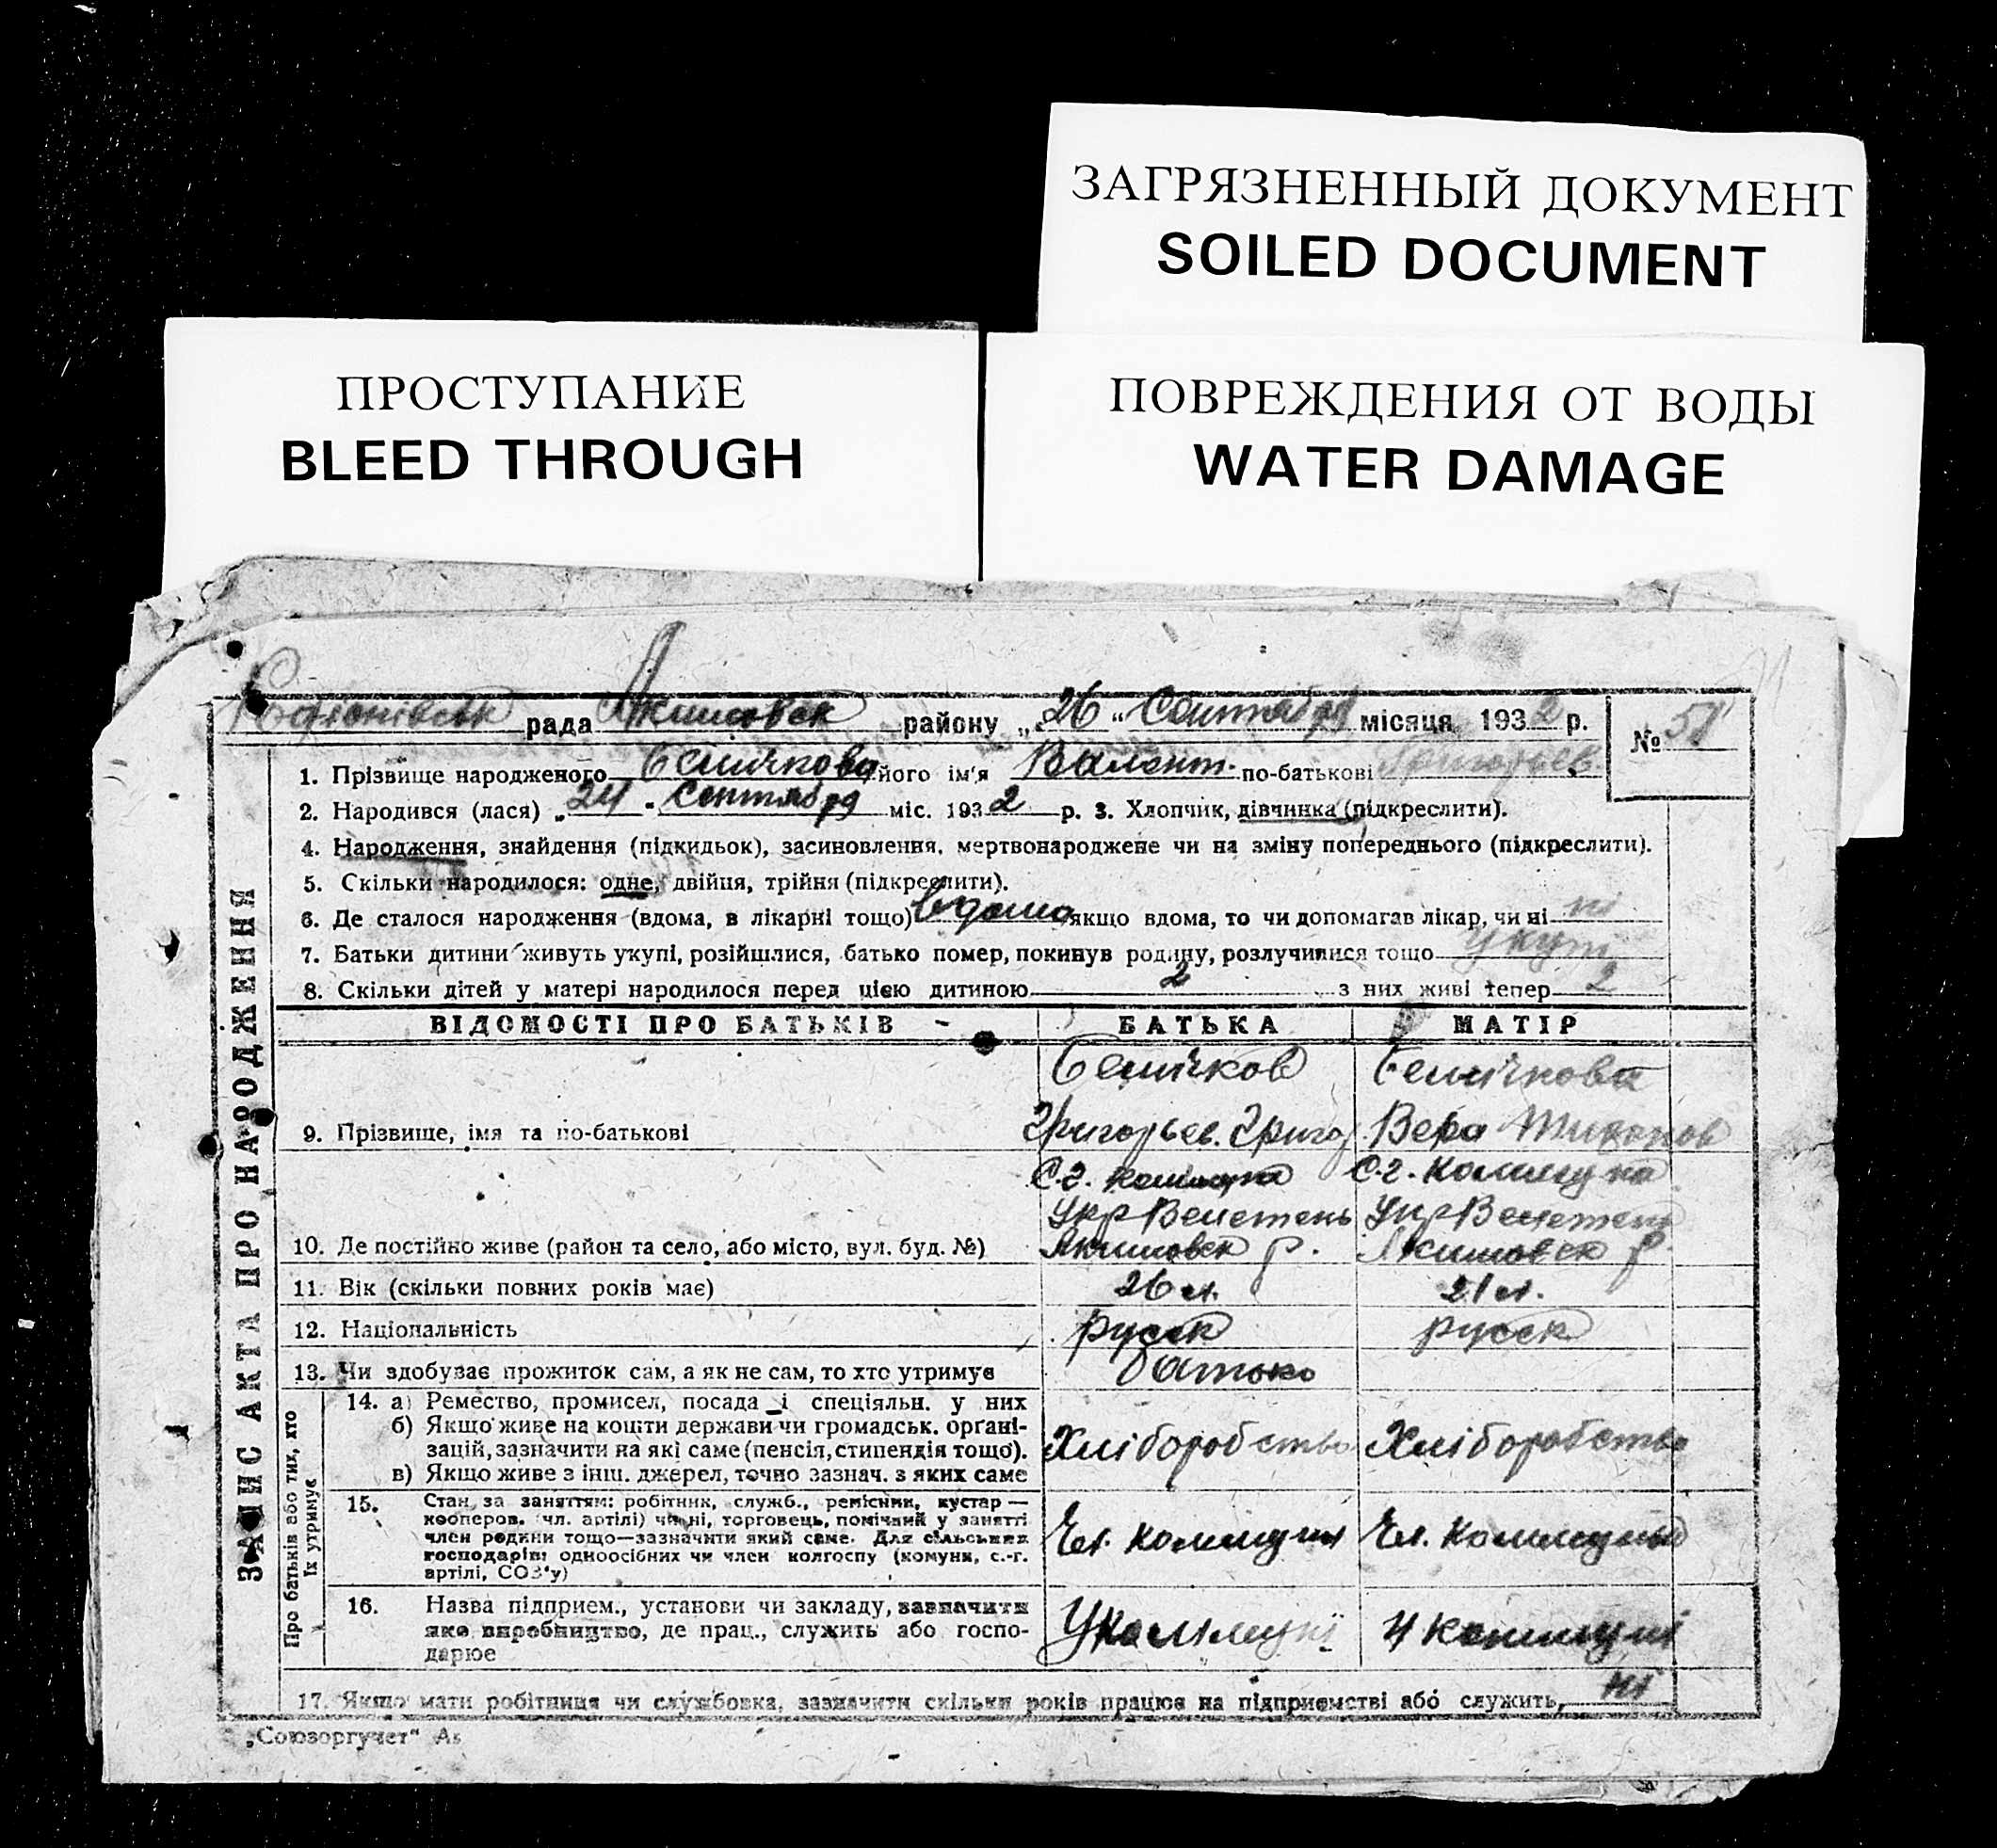 ЗАГРЯЗНЕННЫЙ ДОКУМЕНТ
SOILED DOCUMENT
ПРОСТУПАНИЕ
BLEED THROUGH
ПОВРЕЖДЕНИЯ ОТ ВОДЫ
WATER DAMAGE
рада Якимовск району „26“ Сентября місяця 1932 р.
№ 51
1. Прізвище народженого Семичкова його ім'я Валент. по-батькові Григорьев.
2. Народився (лася) „24 " Сентября міс. 1932 р. 3. Хлопчик, дівчинка (підкреслити).
4. Народження, знайдення (підкидьок), засиновлення, мертвонароджене чи на зміну попереднього (підкреслити).
5. Скільки народилося: одне, двійця, трійня (підкреслити).
6. Де сталося народження (вдома, в лікарні тощо) вдома якщо вдома, то чи допомагав лікар, чи ні ні
7. Батьки дитини живуть укупі, розійшлися, батько помер, покинув родину, розлучилися тощо укупі
8. Скільки дітей у матері народилося перед цією дитиною 2 з них живі тепер 2
ЗАПИС АКТА ПРО НАРОДЖЕННЯ
ВІДОМОСТІ ПРО БАТЬКІВ БАТЬКА МАТІР
Семичков Семичкова
9. Прізвище, імя та по-батькові Григорьев. Григор. Вера Тихонов
С.г. коммуна С.г. Коммуна
10. Де постійно живе (район та село, або місто, вул. буд. №) Якимовск р. Якимовск р.
11. Вік (скільки повних років має) 26 л. 21 л.
12. Національність русск русск
13. Чи здобуває прожиток сам, а як не сам, то хто утримує батько
Про батьків або тих, хто
їх утримує
14. а) Ремество, промисел, посада і спеціяльн. у них
б) Якщо живе на кошти держави чи громадськ. органі-
зацій, зазначити на які саме (пенсія, стипендія тощо). Хліборобство Хліборобство
в) Якщо живе з інш. джерел, точно зазнач. з яких саме
15. Стан за заняттям: робітник, служб., ремісник, кустар —
кооперов. (чл. артілі) чи ні, торговець, помічний у занятті
член родини тощо—зазначити який саме. Для сільських Чл. коммуни Чл. Коммуны
господарів: одноосібних чи член колгоспу (комуни, с.-г.
артілі, СОЗ'у)
16. Назва підприєм., установи чи закладу, зазначити
яке виробництво, де прац., служить або госпо- У коммуні У коммуні
дарює
17. Якщо мати робітниця чи службовка, зазначити скільки років працює на підприємстві або служить, ні
„Союзоргучет"